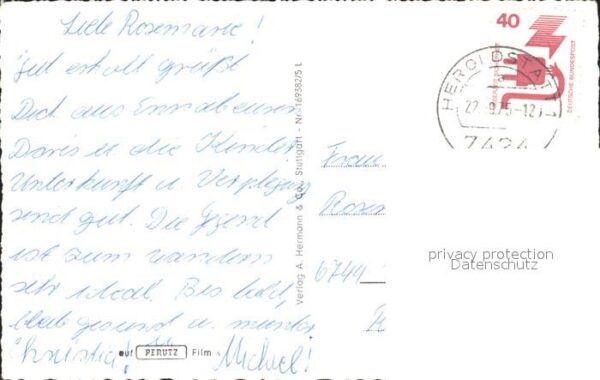 Liebe Rosemarie!
Gut erholt grüßt
Dich aus Ennabeuren
Doris u. die Kinder.
Unterkunft u. Verpflegung
sind gut. Die Gegend
ist zum wandern
sehr ideal. Bis bald,
bleib gesund u. munter
Kristia! Michael!
auf PERUTZ Film
Verlag A. Hermann & Co., Stuttgart - Nr. 169582/5 L
40
DEUTSCHE BUNDESPOST
HEROLDSTATT
22.9.75-12
7424
Frau
Rosem
6744
privacy protection
Datenschutz